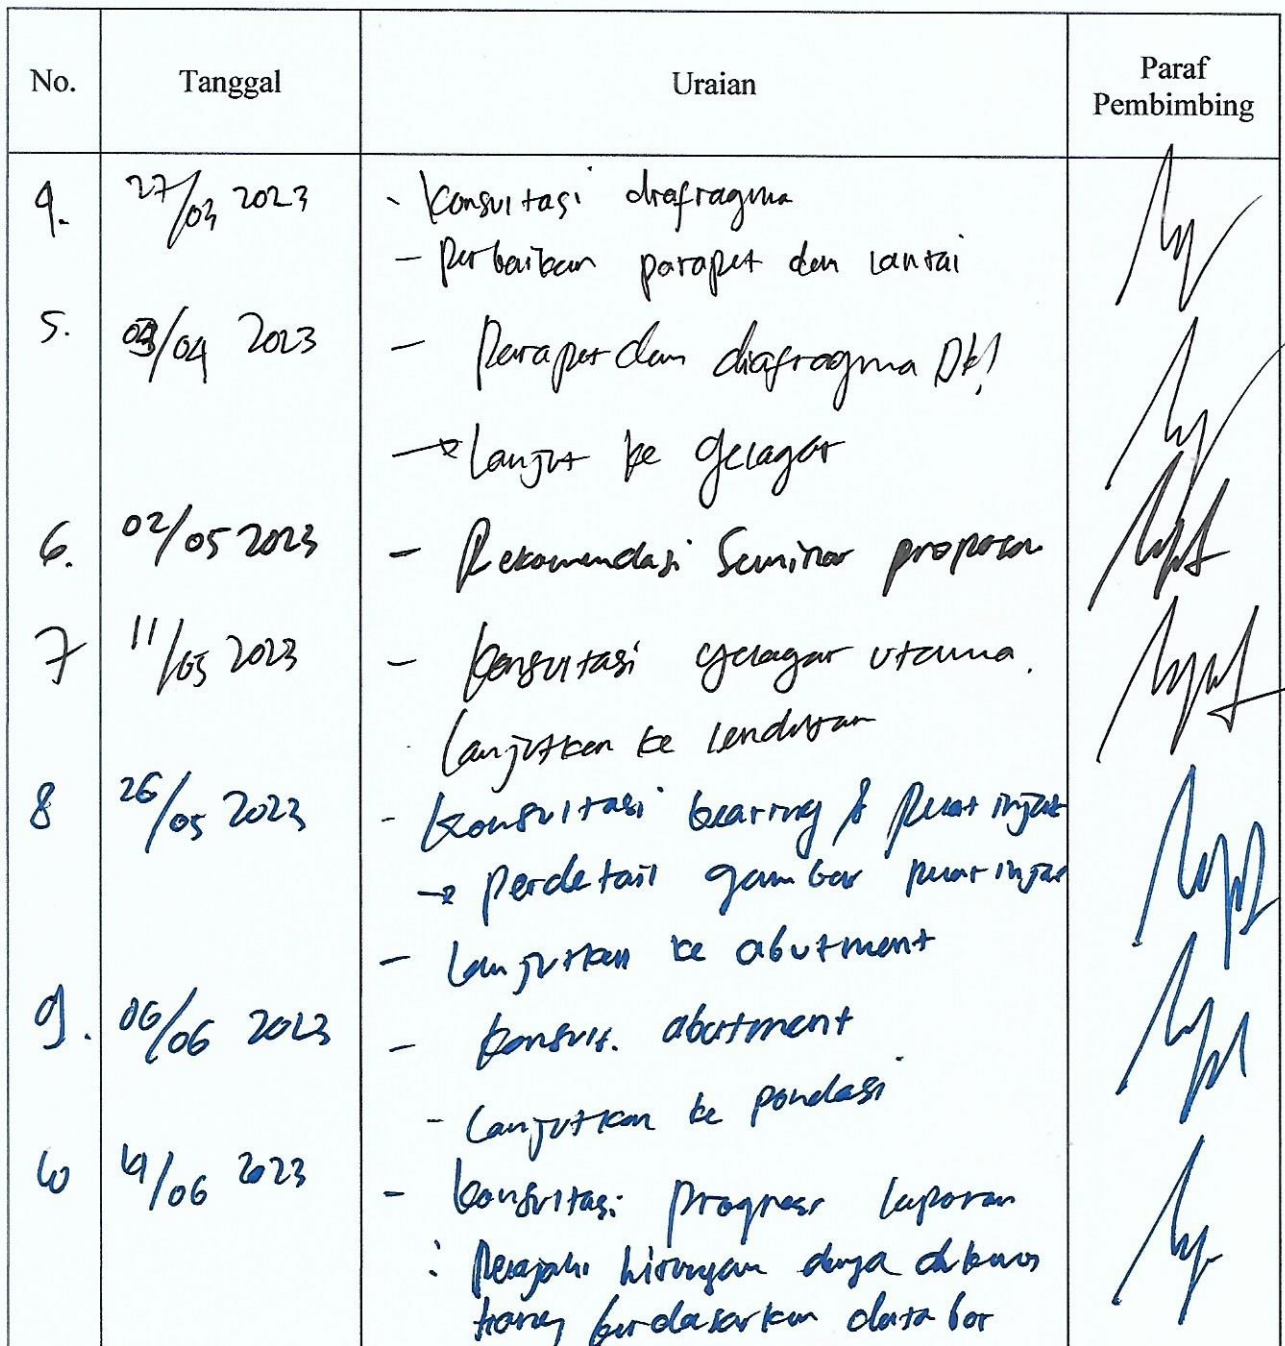 No. Tanggal Uraian Paraf Pembimbing
4. 27/03 2023 - Konsultasi diafragma
- Perbaikan parapet dan lantai
5. 03/04 2023 - Parapet dan diafragma Ok!
→ Lanjut ke gelagar
6. 02/05 2023 - Rekomendasi Seminar proposal
7 11/05 2023 - Konsultasi gelagar utama.
Lanjutkan ke lendutan
8 26/05 2023 - Konsultasi bearing & plat injak
→ Perdetail gambar plat injak
- Lanjutkan ke abutment
9. 06/06 2023 - Konsult. abutment
- Lanjutkan ke pondasi
10 19/06 2023 - Konsultasi Progress laporan
: hitungan daya dukung
tiang berdasarkan data bor